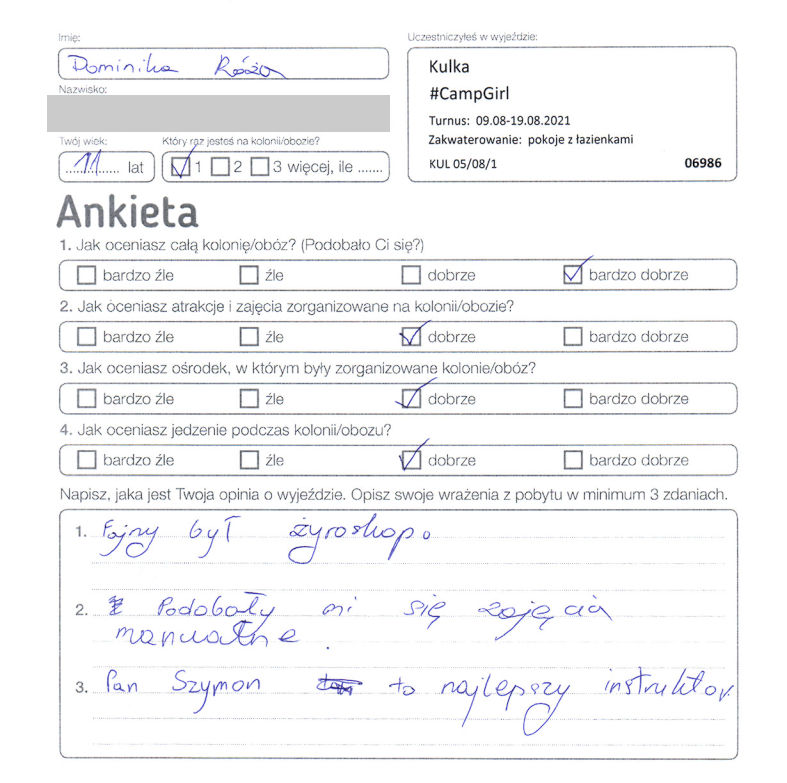 Imię:
Dominika Róża
Nazwisko:
Twój wiek:
11 lat
Który raz jesteś na kolonii/obozie?
1 2 3 więcej, ile .......
Uczestniczyłeś w wyjeździe:
Kulka
#CampGirl
Turnus: 09.08-19.08.2021
Zakwaterowanie: pokoje z łazienkami
KUL 05/08/1 06986
Ankieta
1. Jak oceniasz całą kolonię/obóz? (Podobało Ci się?)
bardzo źle źle dobrze bardzo dobrze
2. Jak oceniasz atrakcje i zajęcia zorganizowane na kolonii/obozie?
bardzo źle źle dobrze bardzo dobrze
3. Jak oceniasz ośrodek, w którym były zorganizowane kolonie/obóz?
bardzo źle źle dobrze bardzo dobrze
4. Jak oceniasz jedzenie podczas kolonii/obozu?
bardzo źle źle dobrze bardzo dobrze
Napisz, jaka jest Twoja opinia o wyjeździe. Opisz swoje wrażenia z pobytu w minimum 3 zdaniach.
1. Fajny był żyroskop.
2. Podobały mi się zajęcia
manualne.
3. Pan Szymon to najlepszy instruktor.